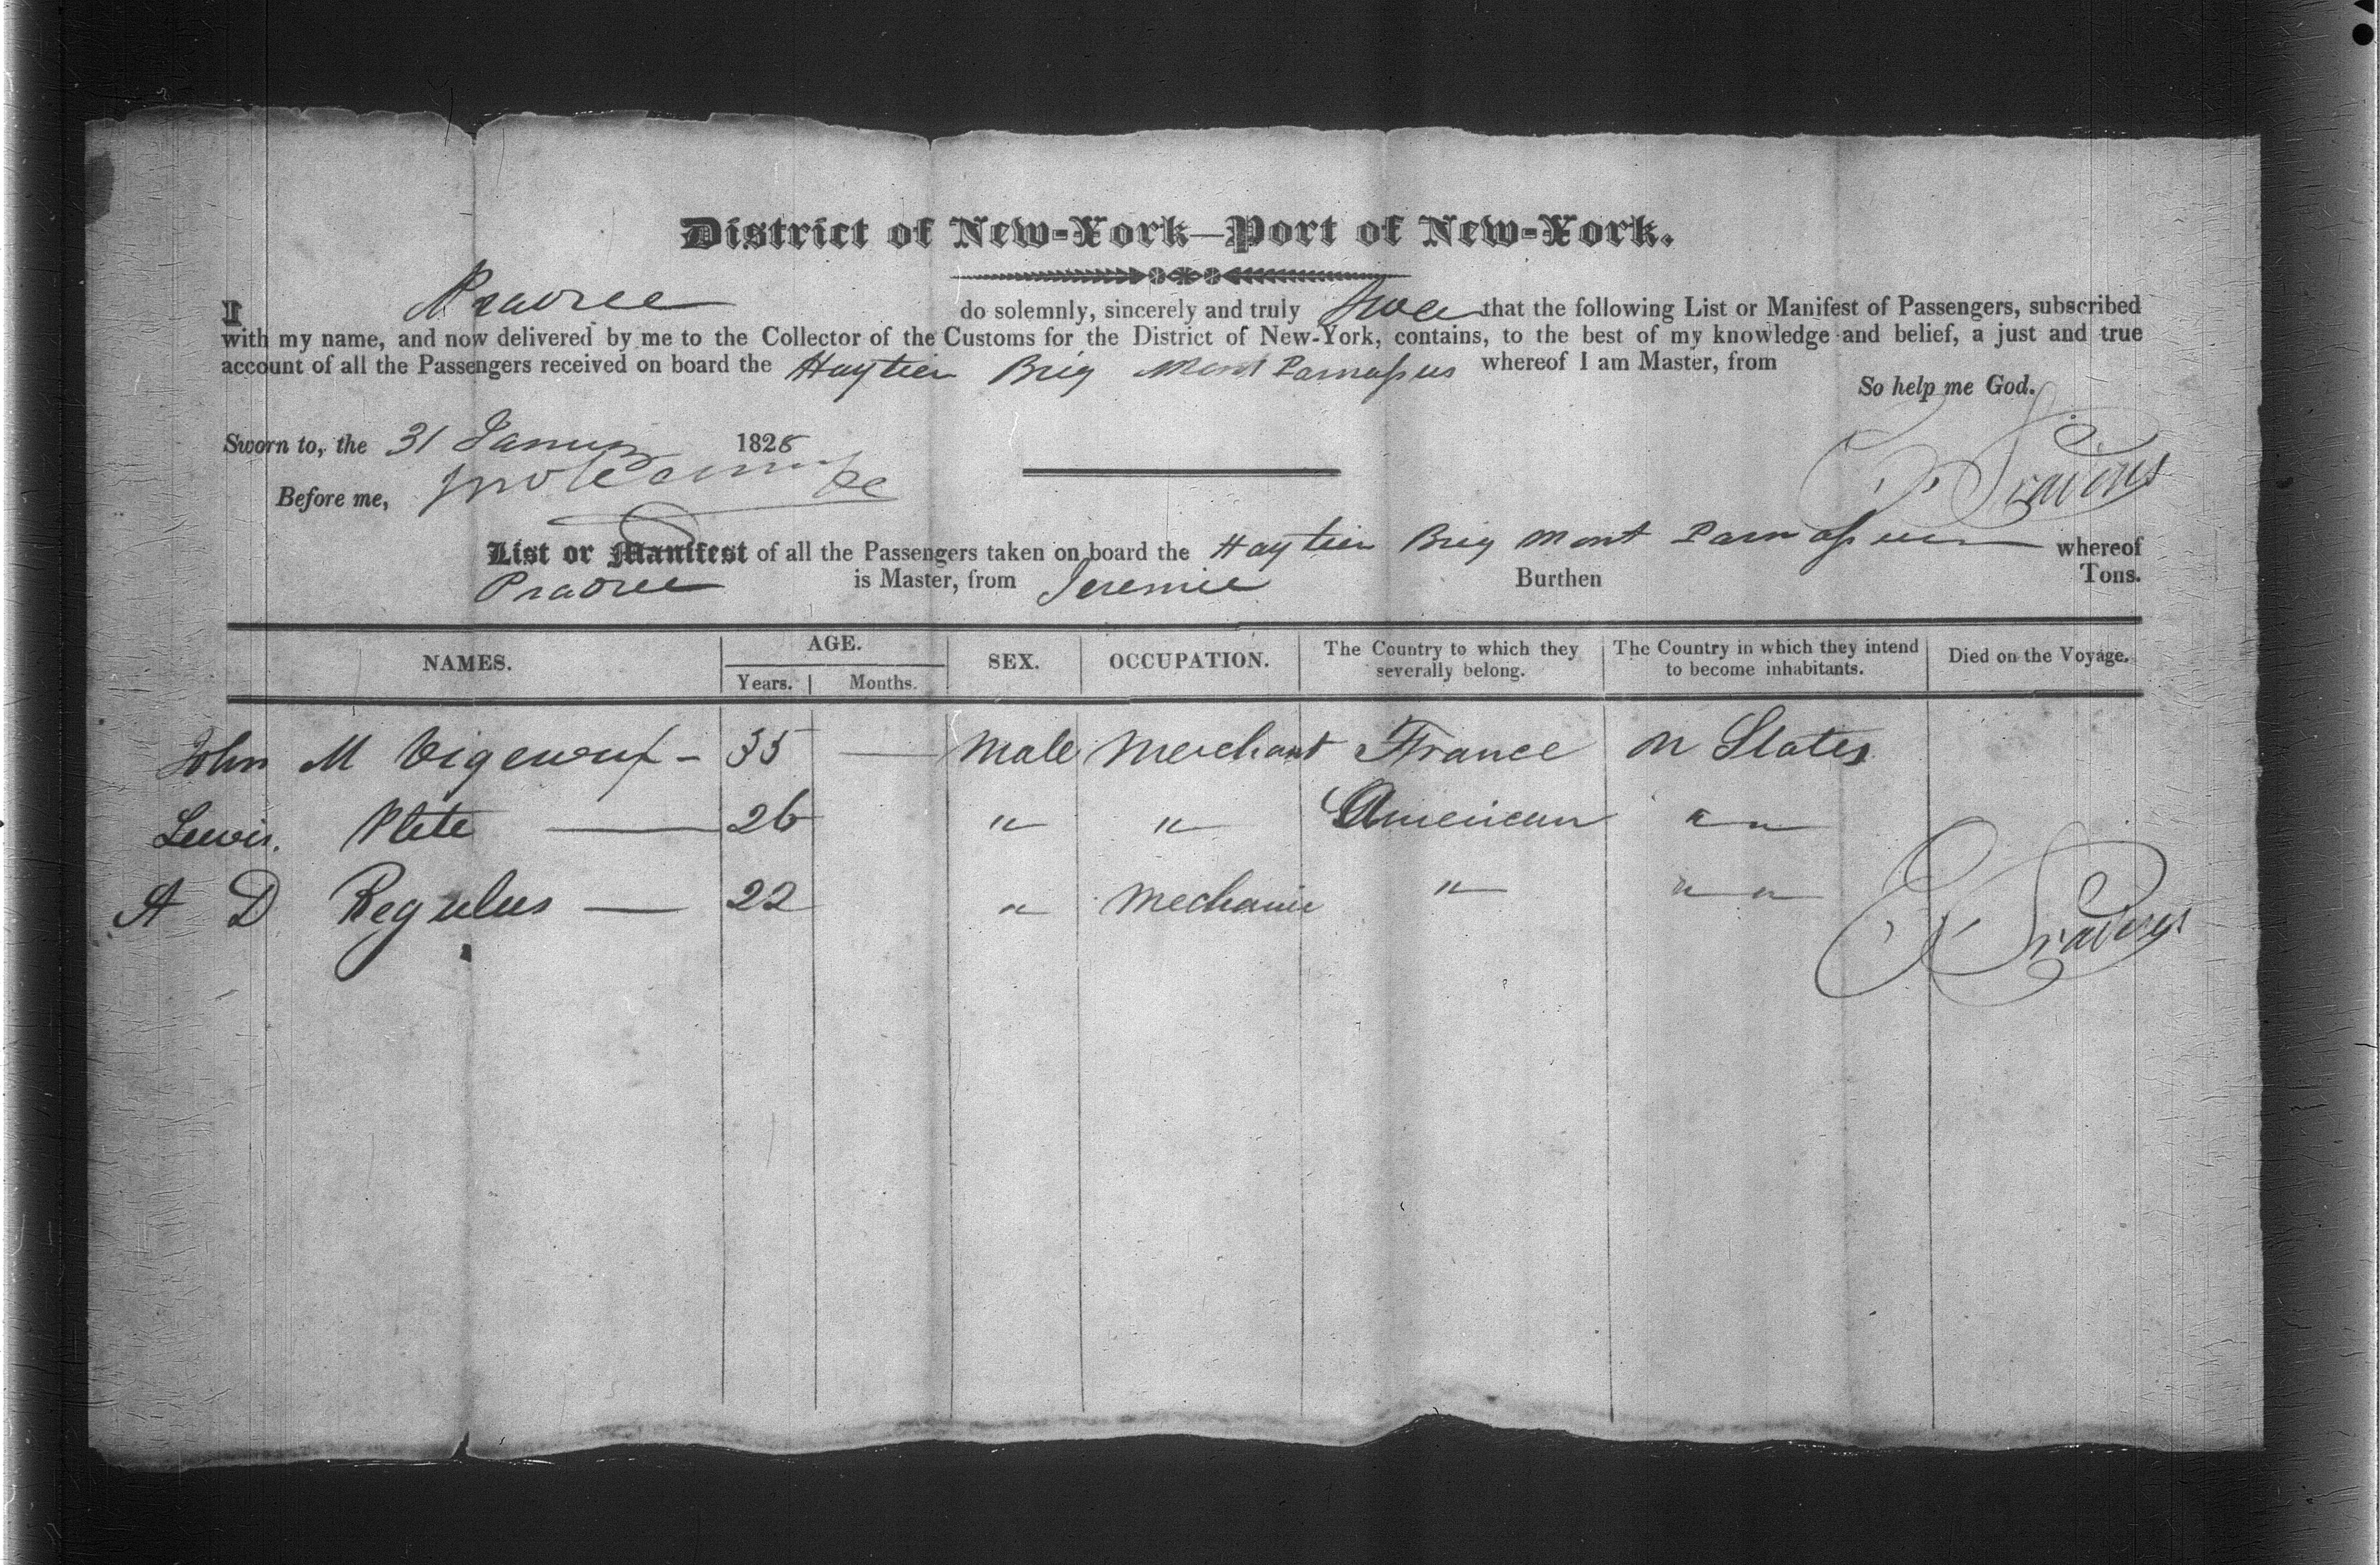 District of New-York—Port of New-York.
I do solemnly, sincerely and truly that the following List or Manifest of Passengers, subscribed
with my name, and now delivered by me to the Collector of the Customs for the District of New-York, contains, to the best of my knowledge and belief, a just and true
account of all the Passengers received on board the Haytien Brig Mont Parnassus whereof I am Master, from
So help me God.
Sworn to, the 31 January 1828
Before me,
List or Manifest of all the Passengers taken on board the Haytien Brig Mont Parnassus whereof
is Master, from Jeremie Burthen Tons.
NAMES. AGE. Years. Months. SEX. OCCUPATION. The Country to which they severally belong. The Country in which they intend to become inhabitants. Died on the Voyage.
John M — 35 — Male Merchant France States
Lewis. Plete — 26 " " American " "
A D Regulus — 22 " Mechanic " " "